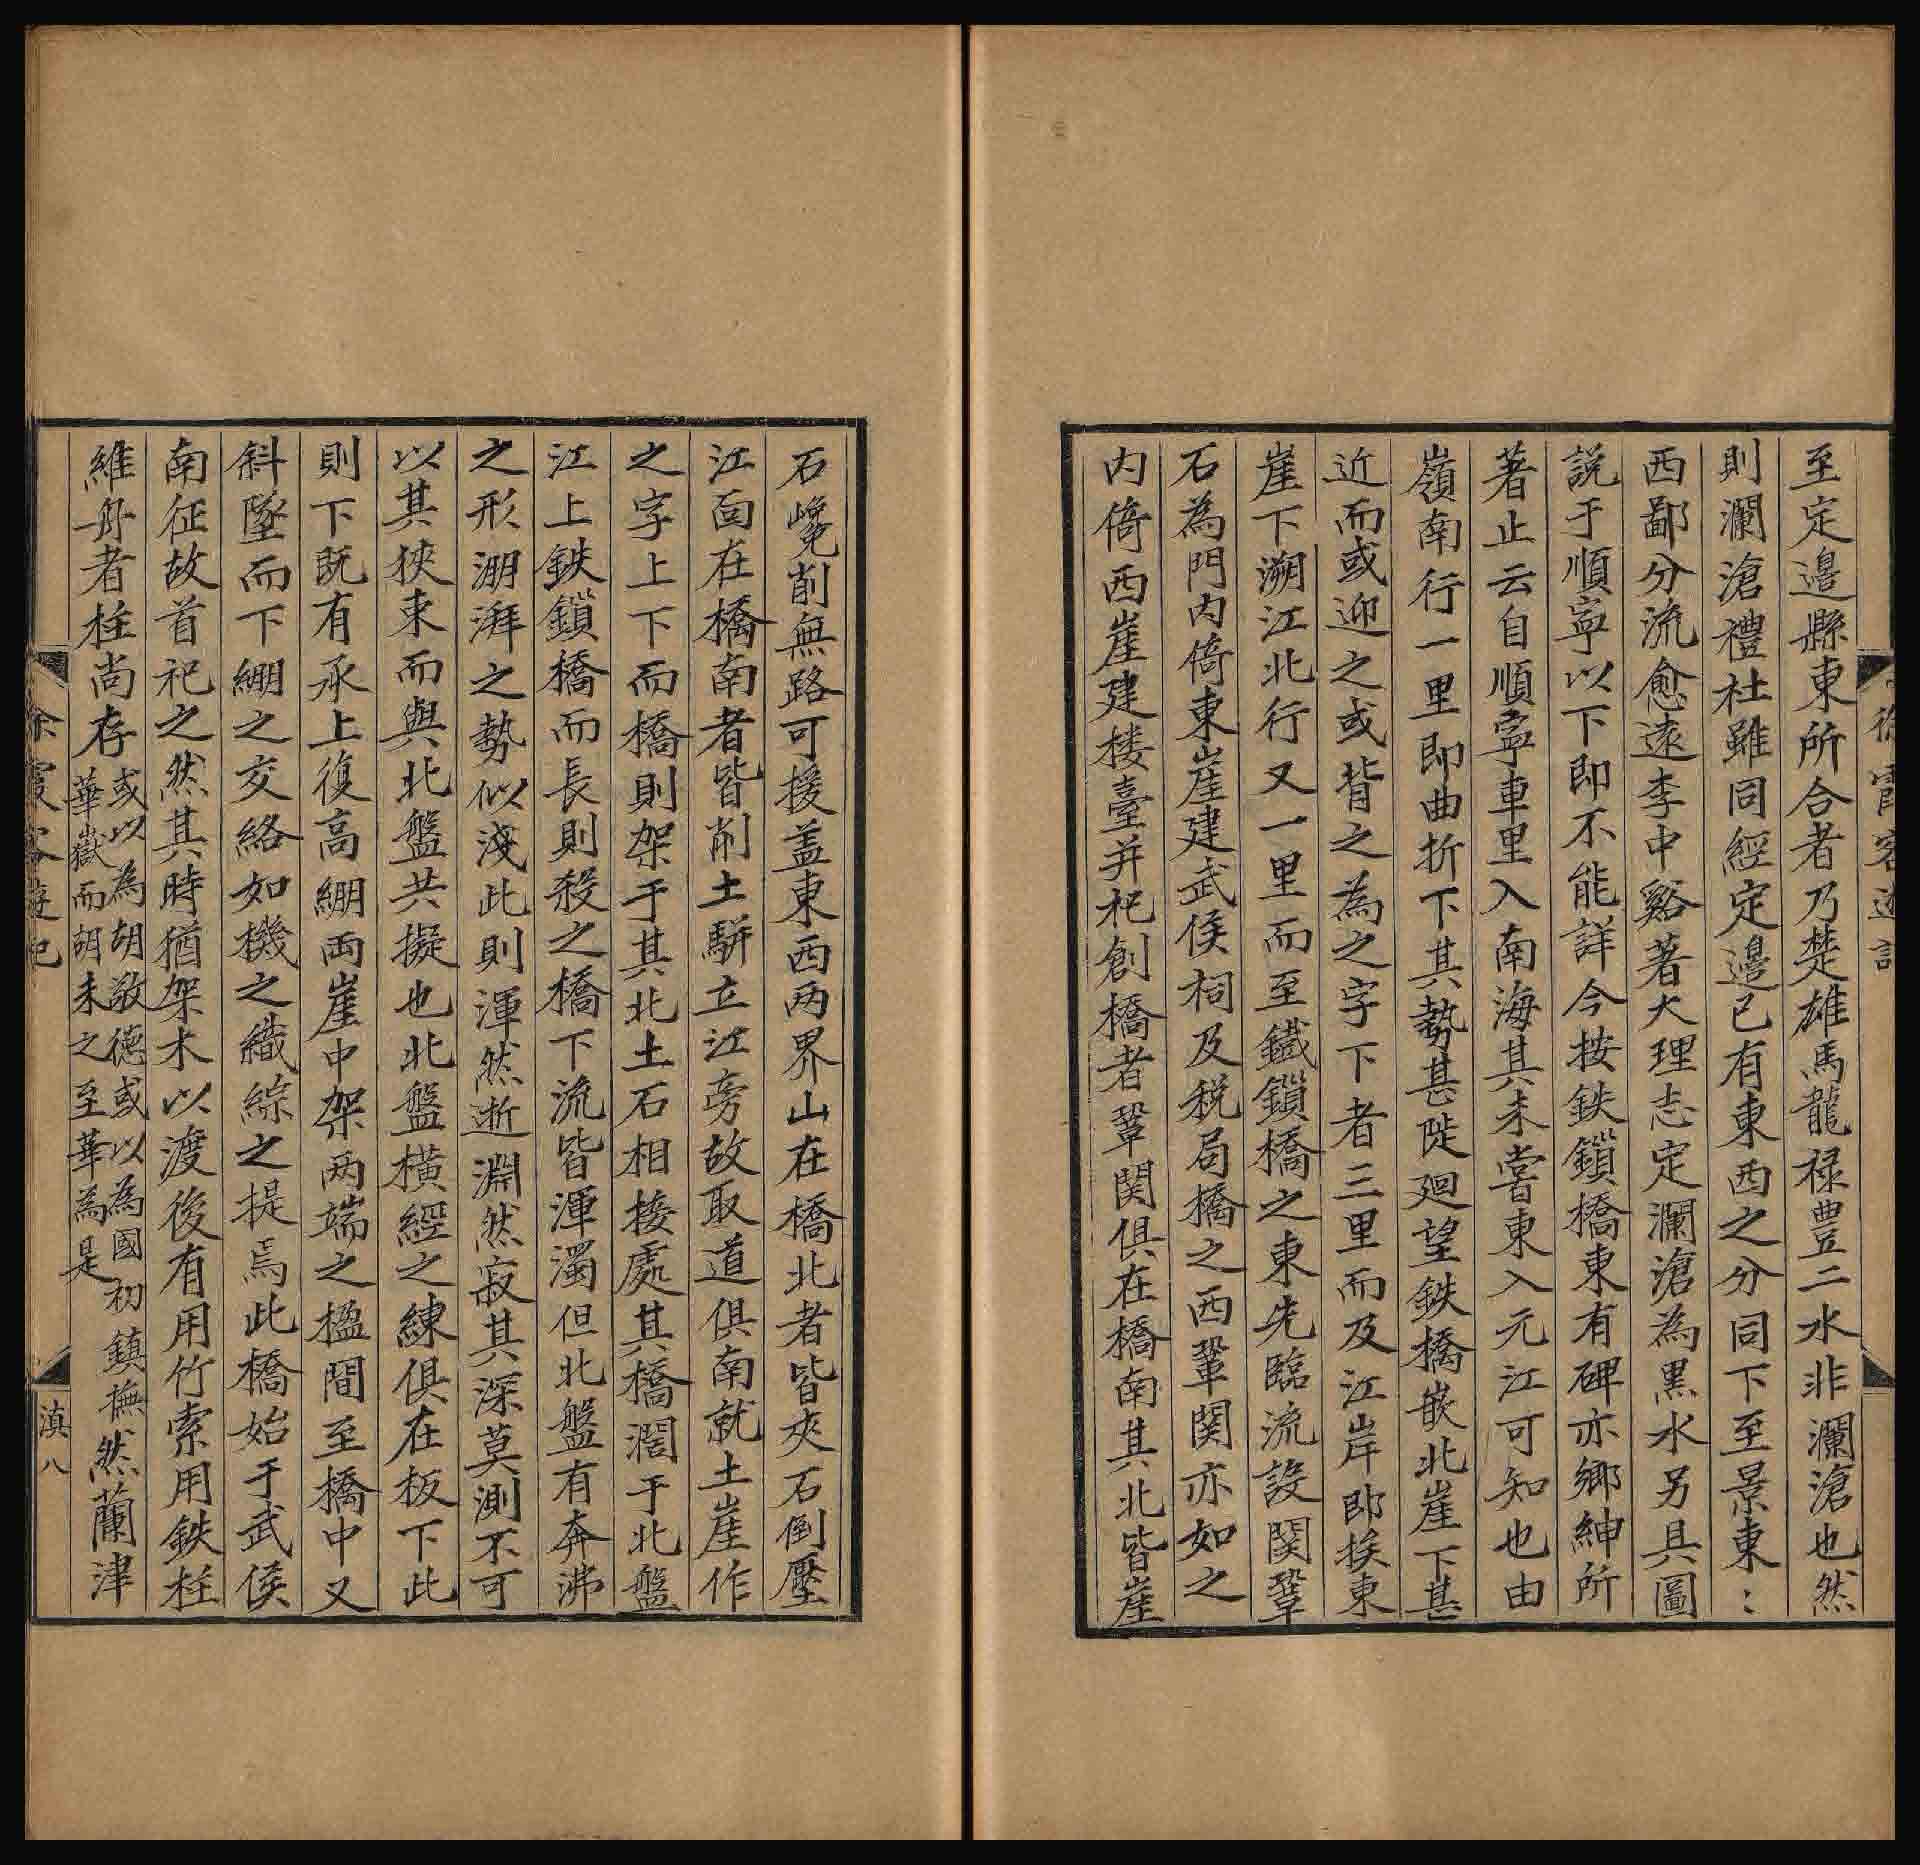 徐霞客遊記
至定邉縣東所合者乃楚雄馬龍禄豊二水非瀾滄也然
則瀾滄禮杜雖同經定邉已有東西之分同下至景東:
西鄙分流愈遠李中谿著大理志定瀾滄為黒水另具圖
說于順寧以下即不能詳今按鉄鎖橋東有碑亦鄉紳所
著止云自順寧車里入南海其未嘗東入元江可知也由
嶺南行一里即曲折下其勢甚陡廻望鉄橋嵌北崖下甚
近而或迎之或背之為之字下者三里而及江岸即挨東
崖下溯江北行又一里而至鐵鎖橋之東先臨流設関鞏
石為門内倚東崖建武侯祠及税局橋之西鞏関亦如之
内倚西崖建楼臺并祀創橋者鞏関俱在橋南其北皆崖
石巉削無路可援盖東西两界山在橋北者皆夾石倒壓
江面在橋南者皆削土駢立江旁故取道俱南就土崖作
之字上下而橋則架于其北土石相接處其橋濶于北盤
江上鉄鎖橋而長則殺之橋下流皆渾濁但北盤有奔沸
之形淜湃之勢似淺此則渾然逝淵然寂其深莫測不可
以其狹束而與北盤共擬也北盤橫經之練俱在板下此
則下既有承上復高繃两崖中架两端之楹間至橋中又
斜墜而下繃之交絡如機之織綜之提焉此橋始于武侯
南征故首祀之然其時猶架木以渡後有用竹索用鉄柱
維舟者柱尚存或以為胡敬德或以為國初鎮撫
華嶽而胡未之至華為是然蘭津
徐霞客遊記
滇八